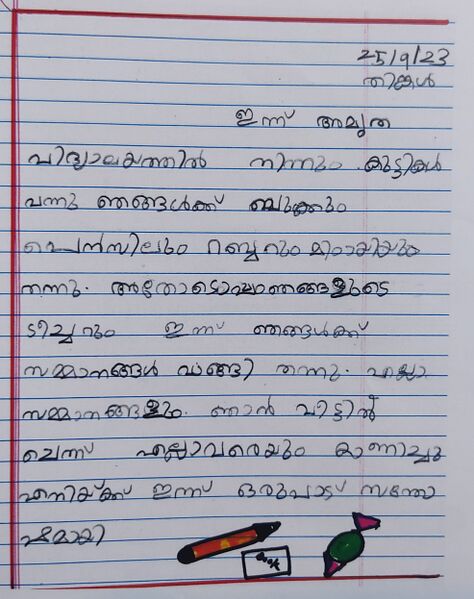 25/9/23
തിങ്കൾ
ഇന്ന് അമൃത
വിദ്യാലയത്തിൽ നിന്നും കുട്ടികൾ
വന്നു ഞങ്ങൾക്ക് ബുക്കും
പെൻസിലും റബ്ബറും മിഠായിയും
തന്നു. അതോടൊപ്പം ഞങ്ങളുടെ
ടീച്ചറും ഇന്ന് ഞങ്ങൾക്ക്
സമ്മാനങ്ങൾ വാങ്ങി തന്നു. എല്ലാ
സമ്മാനങ്ങളും. ഞാൻ വീട്ടിൽ
ചെന്ന് എല്ലാവരെയും കാണിച്ചു
എനിയ്ക്ക് ഇന്ന് ഒരുപാട് സന്തോ
ഷമായി